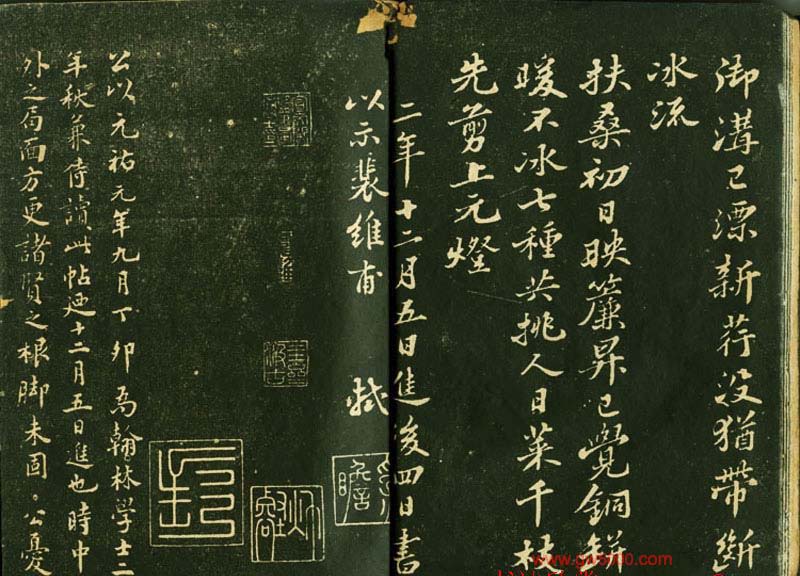 御溝已漂新荇沒猶帶斷
冰流
扶桑初日映簾昇已覺銅缾
暖不冰七種共挑人日菜千枝
先剪上元燈
二年十二月五日進後四日書
以示裴維甫 軾
公以元祐元年九月丁卯為翰林學士二
年秋兼侍讀此帖廼十二月五日進也時中
外之局面方更諸賢之根脚未固。公憂